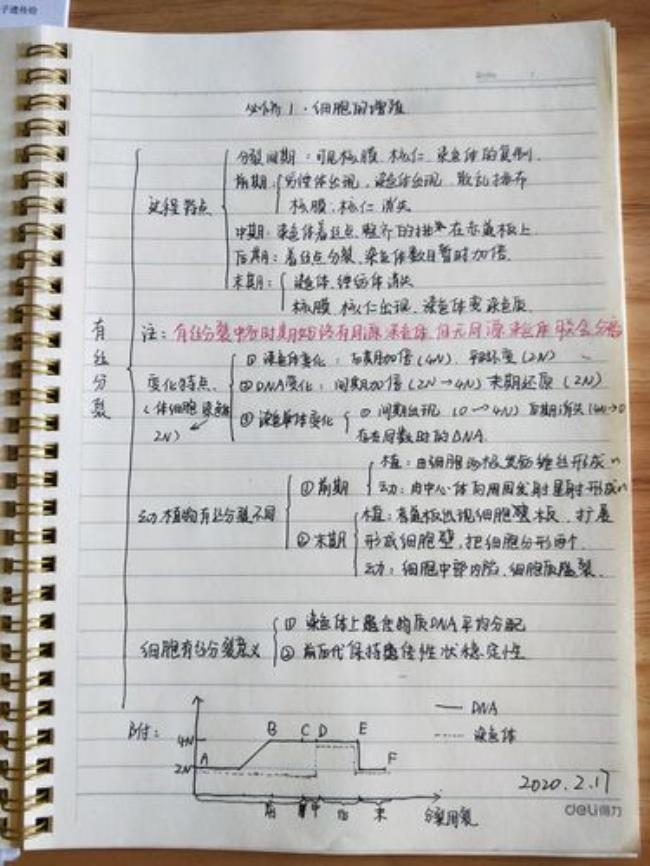 子遗传给
Date
必修1·细胞的增殖
分裂间期：可见核膜、核仁、染色体的复制.
前期：纺锤体出现，染色体出现、散乱排布
核膜、核仁消失
过程特点
中期：染色体着丝点整齐的排在赤道板上
后期：着丝点分裂、染色体数目暂时加倍.
末期：染色体、纺锤体消失
核膜、核仁出现、染色体变染色质.
有丝分裂
注：有丝分裂中各时期始终有同源染色体，但无同源染色体联会分离
变化特点.
（体细胞染色体
2N）
① 染色体变化：后期加倍(4N)，平时不变(2N)
② DNA变化：间期加倍(2N→4N) 末期还原(2N)
③ 染色单体变化
① 间期出现 (0→4N) 后期消失(4N→0)
存在同数时的DNA.
动、植物有丝分裂不同
① 前期
植：由细胞两极发纺锤丝形成
动：由中心体向周围发射星射形成
② 末期
植：赤道板出现细胞板，扩展
形成细胞壁，把细胞分形两个.
动：细胞中部内陷、细胞质隘裂.
细胞有丝分裂意义
① 染色体上遗传物质DNA平均分配
② 前后代保持遗传性状稳定性
附：
4N
2N
A B C D E F
前 中 后 末 分裂周期
DNA
染色体
2020.2.17
deli得力